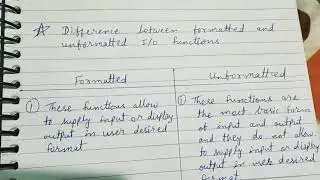 ☆ Difference between formatted and
unformatted I/O functions
Formatted
① These functions allow
to supply input or display
output in user desired
format
Unformatted
① These functions are
the most basic form
of input and output
and they do not allow
to supply input or display
output in user desired
format